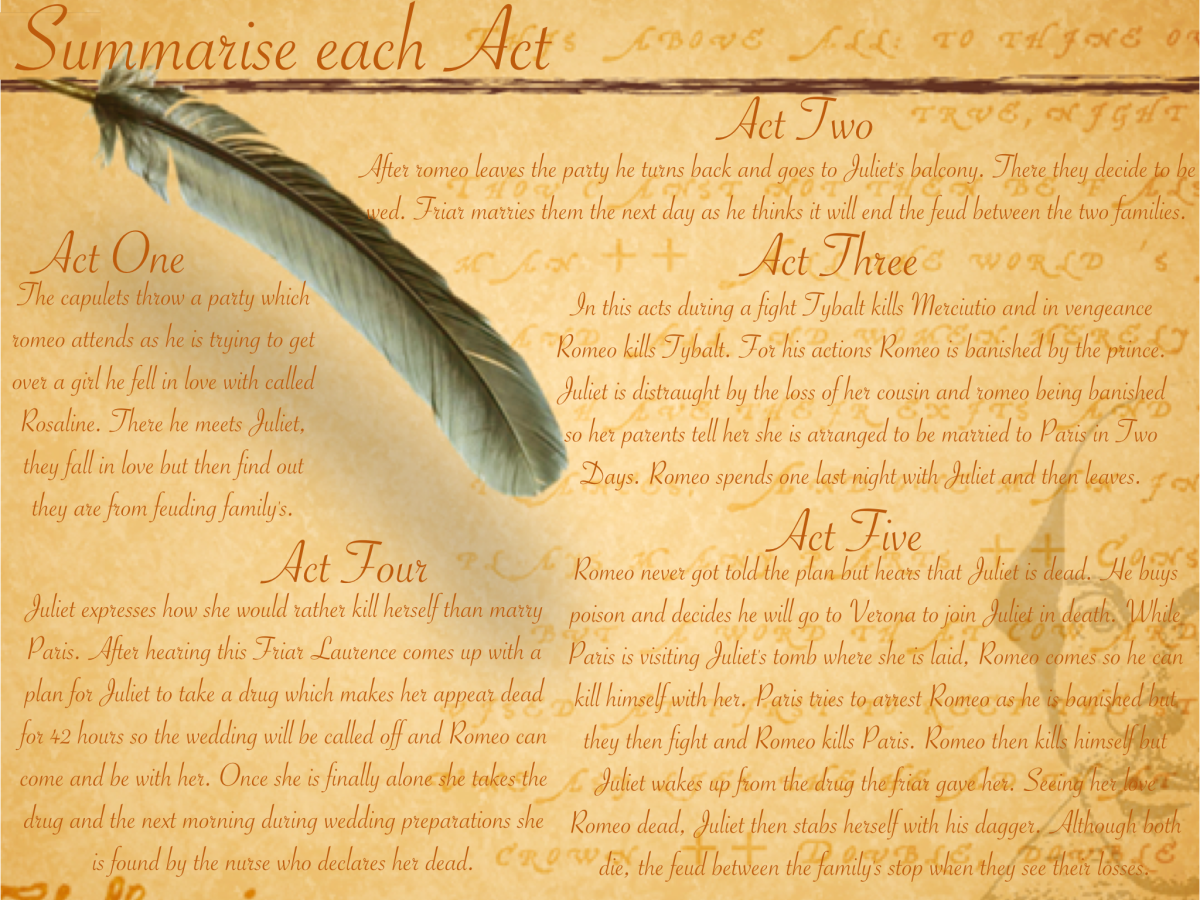 Summarise each Act
Act One
The capulets throw a party which
romeo attends as he is trying to get
over a girl he fell in love with called
Rosaline. There he meets Juliet,
they fall in love but then find out
they are from feuding family's.
Act Two
After romeo leaves the party he turns back and goes to Juliet's balcony. There they decide to be
wed. Friar marries them the next day as he thinks it will end the feud between the two families.
Act Three
In this acts during a fight Tybalt kills Merciutio and in vengeance
Romeo kills Tybalt. For his actions Romeo is banished by the prince.
Juliet is distraught by the loss of her cousin and romeo being banished
so her parents tell her she is arranged to be married to Paris in Two
Days. Romeo spends one last night with Juliet and then leaves.
Act Four
Juliet expresses how she would rather kill herself than marry
Paris. After hearing this Friar Laurence comes up with a
plan for Juliet to take a drug which makes her appear dead
for 42 hours so the wedding will be called off and Romeo can
come and be with her. Once she is finally alone she takes the
drug and the next morning during wedding preparations she
is found by the nurse who declares her dead.
Act Five
Romeo never got told the plan but hears that Juliet is dead. He buys
poison and decides he will go to Verona to join Juliet in death. While
Paris is visiting Juliet's tomb where she is laid, Romeo comes so he can
kill himself with her. Paris tries to arrest Romeo as he is banished but
they then fight and Romeo kills Paris. Romeo then kills himself but
Juliet wakes up from the drug the friar gave her. Seeing her love
Romeo dead, Juliet then stabs herself with his dagger. Although both
die, the feud between the family's stop when they see their losses.
ABOVE ALL: TO THINE
TRUE, NIGHT
WORLD 'S